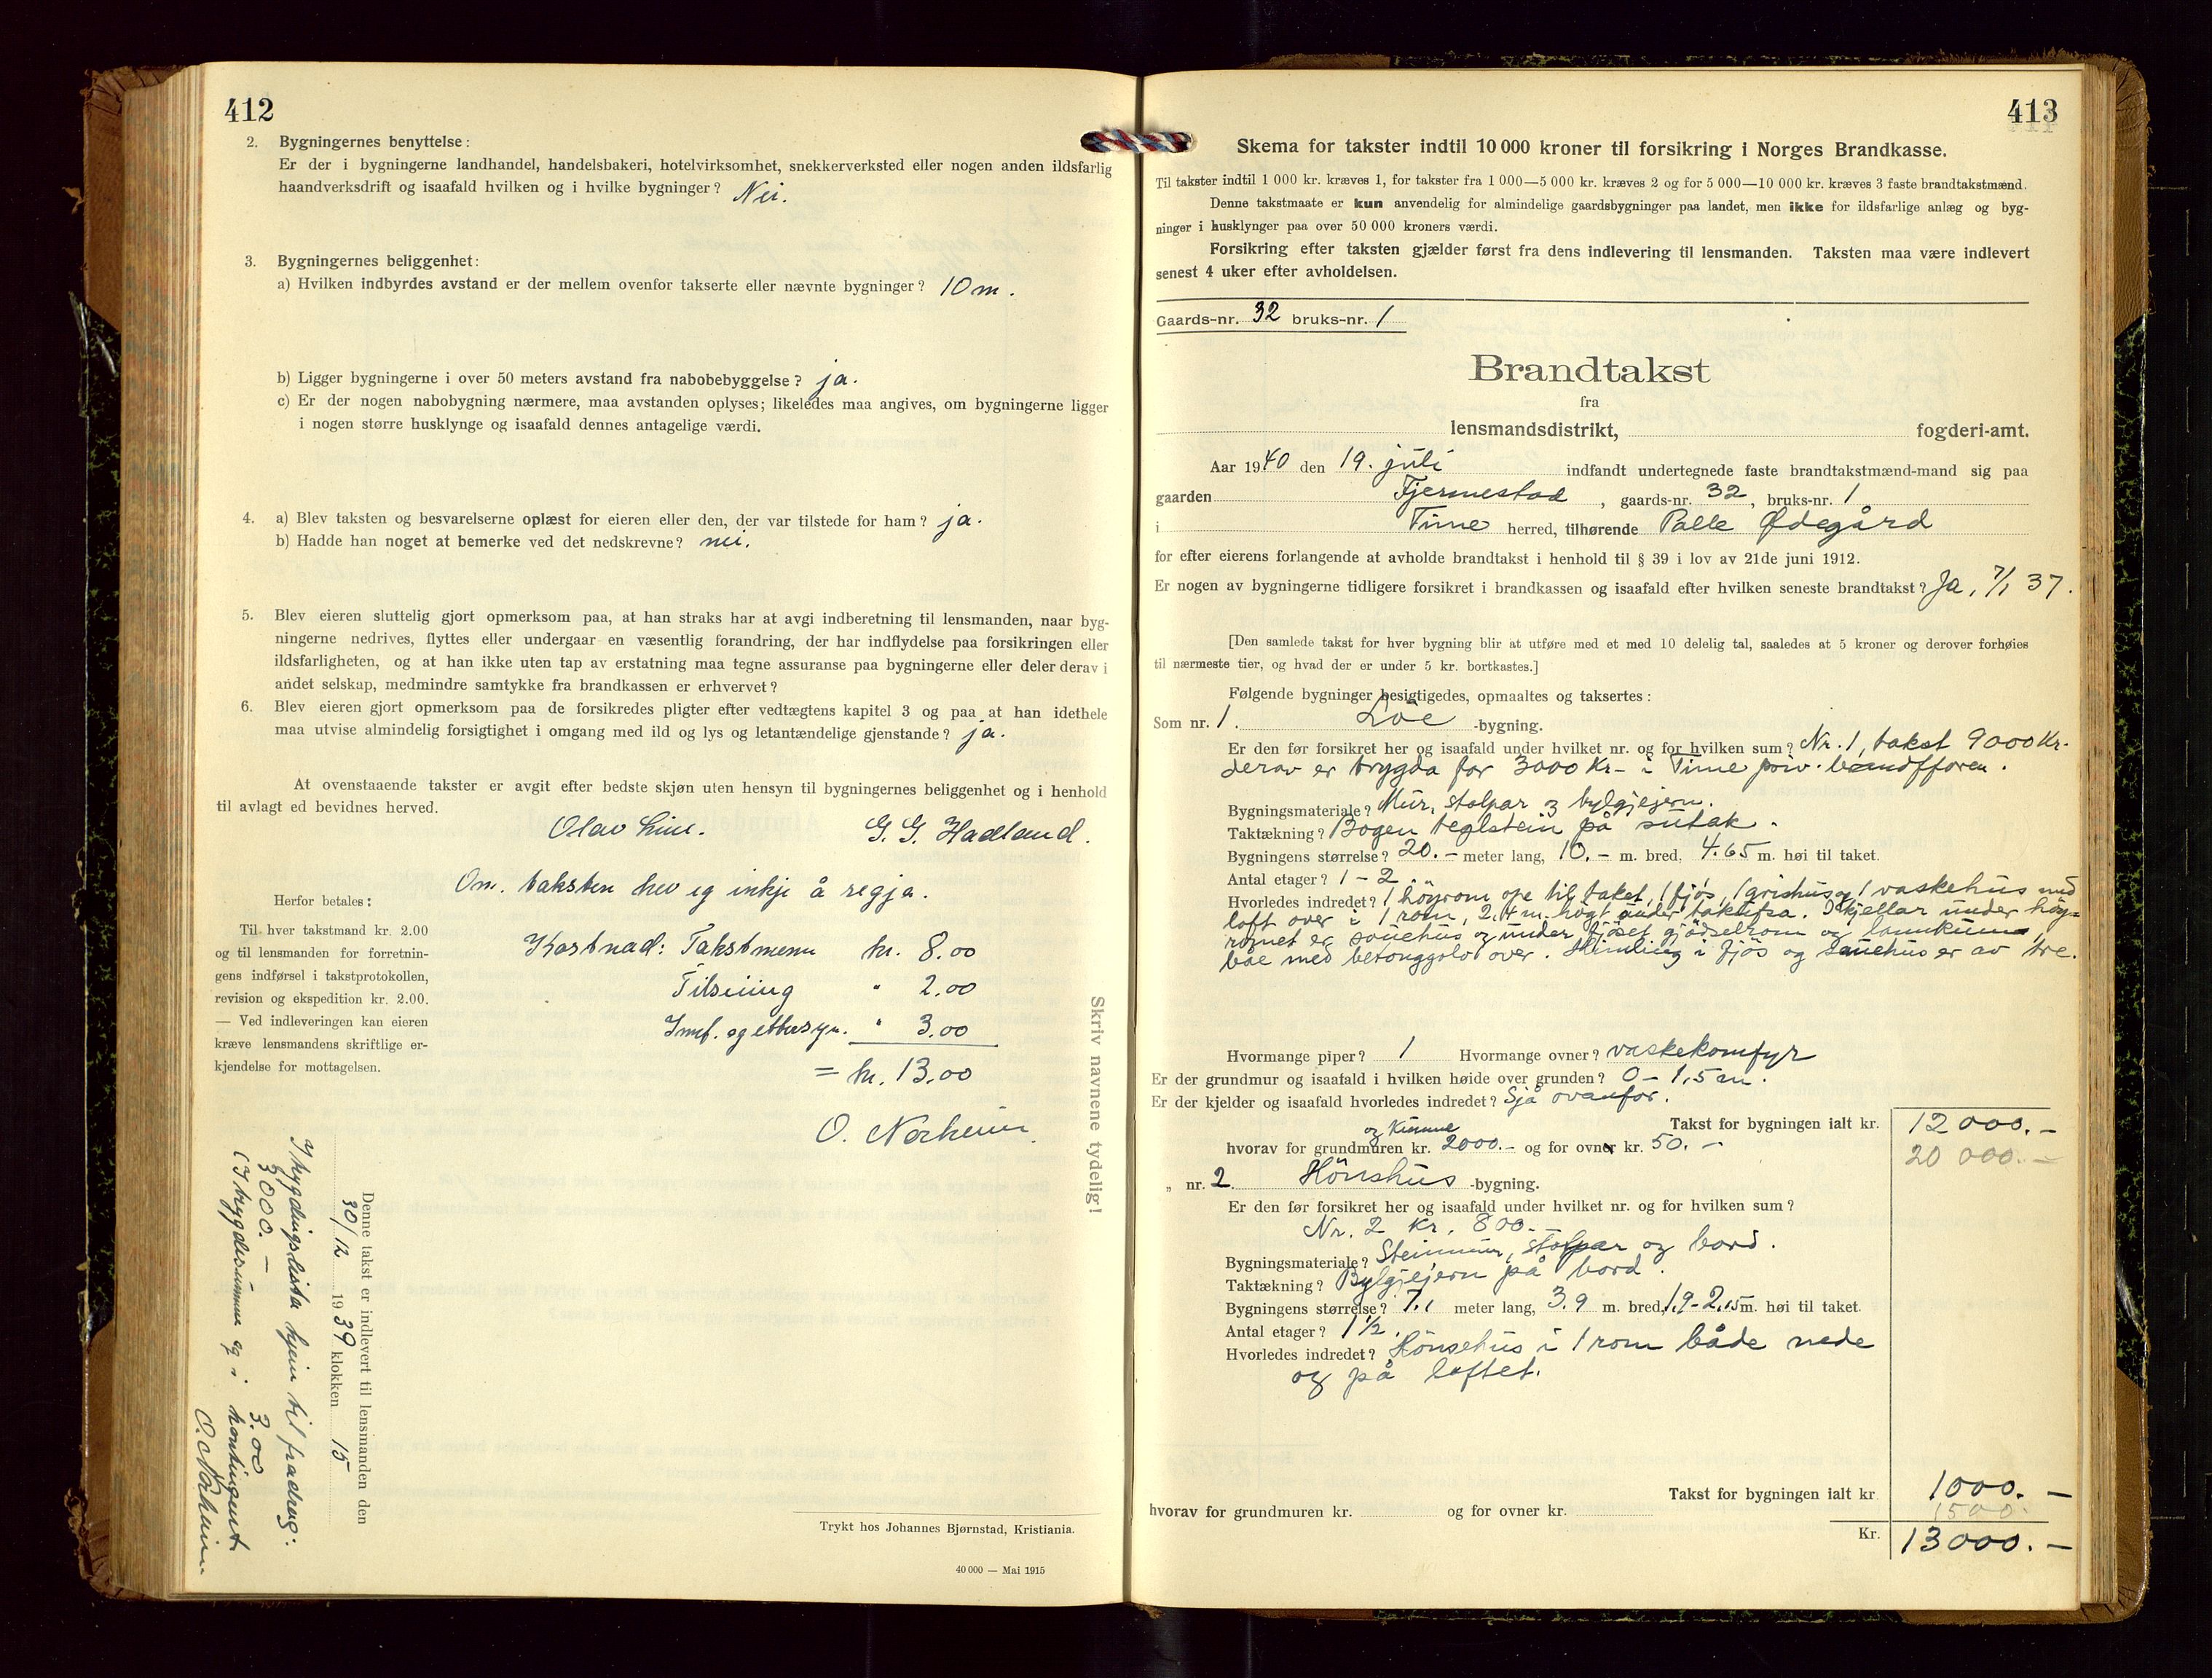 412
2. Bygningernes benyttelse:
Er der i bygningerne landhandel, handelsbakeri, hotelvirksomhet, snekkerverksted eller nogen anden ildsfarlig
haandverksdrift og isaafald hvilken og i hvilke bygninger? Nei.
3. Bygningernes beliggenhet:
a) Hvilken indbyrdes avstand er der mellem ovenfor takserte eller nævnte bygninger? 10 m.
b) Ligger bygningerne i over 50 meters avstand fra nabobebyggelse? ja.
c) Er der nogen nabobygning nærmere, maa avstanden oplyses; likeledes maa angives, om bygningerne ligger
i nogen større husklynge og isaafald dennes antagelige værdi.
4. a) Blev taksten og besvarelserne oplæst for eieren eller den, der var tilstede for ham? ja.
b) Hadde han noget at bemerke ved det nedskrevne? nei.
5. Blev eieren sluttelig gjort opmerksom paa, at han straks har at avgi indberetning til lensmanden, naar byg-
ningerne nedrives, flyttes eller undergaar en væsentlig forandring, der har indflydelse paa forsikringen eller
ildsfarligheten, og at han ikke uten tap av erstatning maa tegne assuranse paa bygningerne eller deler derav i
andet selskap, medmindre samtykke fra brandkassen er erhvervet?
6. Blev eieren gjort opmerksom paa de forsikredes pligter efter vedtægtens kapitel 3 og paa at han idethele
maa utvise almindelig forsigtighet i omgang med ild og lys og letantændelige gjenstande? ja.
At ovenstaaende takster er avgit efter bedste skjøn uten hensyn til bygningernes beliggenhet og i henhold
til avlagt ed bevidnes herved.
Olav Line. G. G. Hadland.
Om taksten hev eg inkje å segja.
Herfor betales:
Til hver takstmand kr. 2.00
og til lensmanden for forretnin-
gens indførsel i takstprotokollen,
revision og ekspedition kr. 2.00.
— Ved indleveringen kan eieren
kræve lensmandens skriftlige er-
kjendelse for mottagelsen.
Kostnad: Takstmenn kr. 8.00
Tilsiing " 2.00
Innf. og ettersyn. " 3.00
= kr. 13.00
O. Norheim
Skriv navnene tydelig!
Denne takst er indlevert til lensmanden den
30/12 1939 klokken 15
I trygdingslista kjem til fradrag:
3000.— 3.00
(I trygdesummen og i kontingent
O. Norheim
Trykt hos Johannes Bjørnstad, Kristiania.
40 000 — Mai 1915
413
Skema for takster indtil 10 000 kroner til forsikring i Norges Brandkasse.
Til takster indtil 1 000 kr. kræves 1, for takster fra 1 000—5 000 kr. kræves 2 og for 5 000—10 000 kr. kræves 3 faste brandtakstmænd.
Denne takstmaate er kun anvendelig for almindelige gaardsbygninger paa landet, men ikke for ildsfarlige anlæg og byg-
ninger i husklynger paa over 50 000 kroners værdi.
Forsikring efter taksten gjælder først fra dens indlevering til lensmanden. Taksten maa være indlevert
senest 4 uker efter avholdelsen.
Gaards-nr. 32 bruks-nr. 1
Brandtakst
fra
lensmandsdistrikt, fogderi-amt.
Aar 1940 den 19. juli indfandt undertegnede faste brandtakstmænd-mand sig paa
gaarden Fjermestad, gaards-nr. 32, bruks-nr. 1
i Time herred, tilhørende Palle Ødegård
for efter eierens forlangende at avholde brandtakst i henhold til § 39 i lov av 21de juni 1912.
Er nogen av bygningerne tidligere forsikret i brandkassen og isaafald efter hvilken seneste brandtakst? Ja, 7/1 37.
[Den samlede takst for hver bygning blir at utføre med et med 10 delelig tal, saaledes at 5 kroner og derover forhøies
til nærmeste tier, og hvad der er under 5 kr. bortkastes.]
Følgende bygninger besigtigedes, opmaaltes og taksertes:
Som nr. 1. Löe -bygning.
Er den før forsikret her og isaafald under hvilket nr. og for hvilken sum? Nr. 1, takst 9000 Kr.
derav er trygda for 3000 Kr- i Time priv.
Bygningsmateriale? Mur, stolpar og bylgjejern.
Taktækning? Bogen teglstein på sutak.
Bygningens størrelse? 20.- meter lang, 10.- m. bred, 4.65 m. høi til taket.
Antal etager? 1 - 2
Hvorledes indredet? 1 höyrom ope til taket, 1 fjös, 1 grishus og 1 vaskehus med
loft over i 1 rom, 2,4 m. högt under takufsa. I kjellar under höy-
romet er sauehus og under fjöset gjödselrom og
båe med betonggolv over. Himling i fjös og sauehus er av tre.
Hvormange piper? 1 Hvormange ovner? vaskekomfyr
Er der grundmur og isaafald i hvilken høide over grunden? 0 - 1,5 m.
Er der kjelder og isaafald hvorledes indredet? Sjå ovanfor.
Takst for bygningen ialt kr. 12 000.—
og Kumme
hvorav for grundmuren kr. 2000.- og for ovner kr. 50.-
20 000.—
„ nr. 2. Hönshus -bygning.
Er den før forsikret her og isaafald under hvilket nr. og for hvilken sum?
Nr. 2 Kr. 800.-
Bygningsmateriale? Steinmur, stolpar og bord.
Taktækning? Bylgjejern på bord.
Bygningens størrelse? 7,1 meter lang, 3.9 m. bred, 1.9-2,15 m. høi til taket.
Antal etager? 1 ½.
Hvorledes indredet? Hönsehus i 1 rom både nede
og på loftet.
Takst for bygningen ialt kr. 1000.—
hvorav for grundmuren kr. og for ovner kr.
1500.
Kr. 13000.—